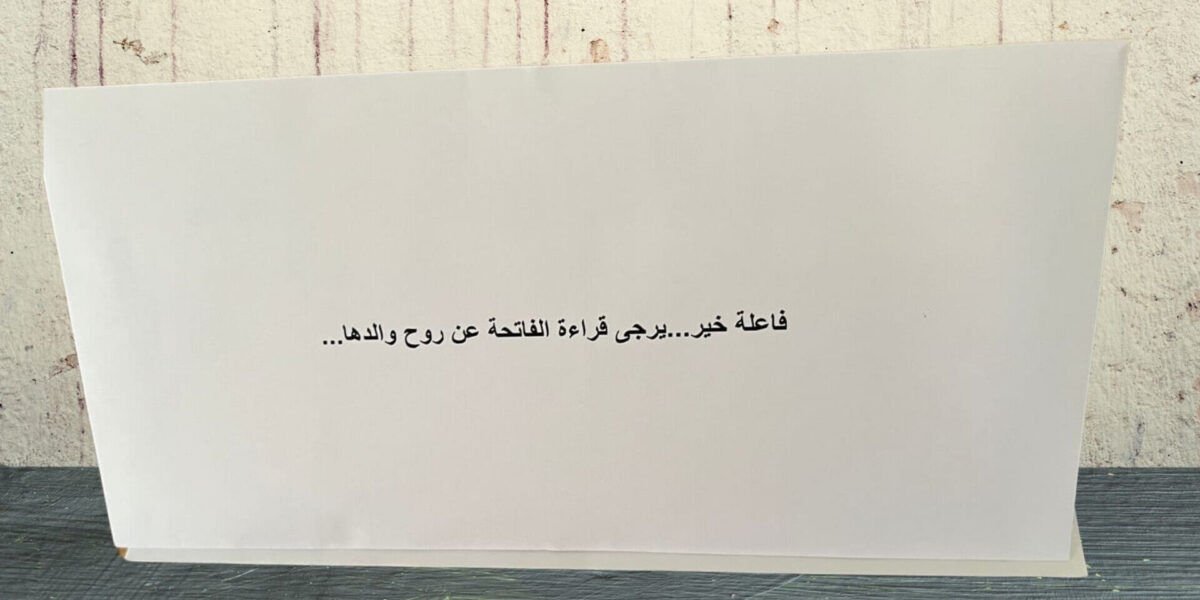 فاعلة خير...يرجى قراءة الفاتحة عن روح والدها...